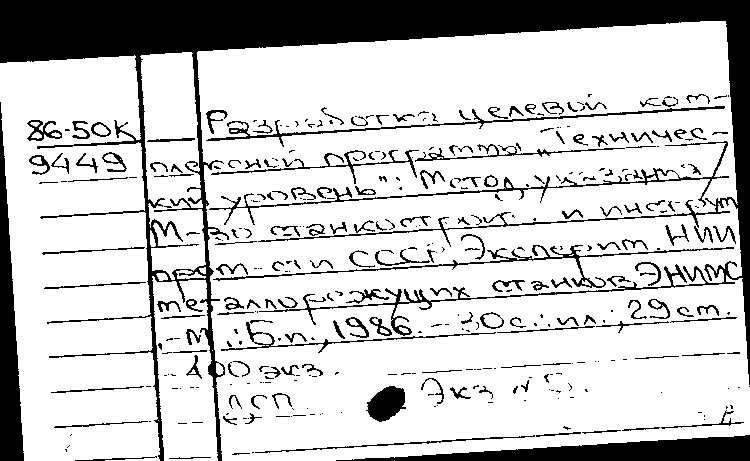 86-50К Разработка целевой ком-
9449 плексной программы „Техничес-
кий уровень": Метод. указания /
М-во станкостроит. и инструм.
пром-сти СССР, Эксперим. НИИ
металлорежущих станков ЭНИМС
.-М.: Б.и., 1986. - 30 с.: ил.; 29 см.
100 экз.
ДСП Экз N 5.